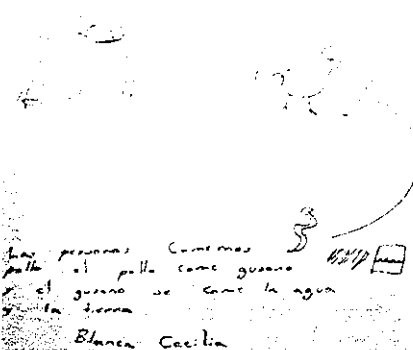 Las personas Comemos
pollo el pollo come gusano
y el gusano se come la agua
y la tierra
Blanca Cecilia